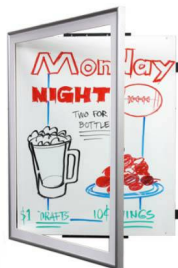 Monday
NIGHT
TWO FOR
BOTTLE
$1 DRAFTS 10¢ WINGS